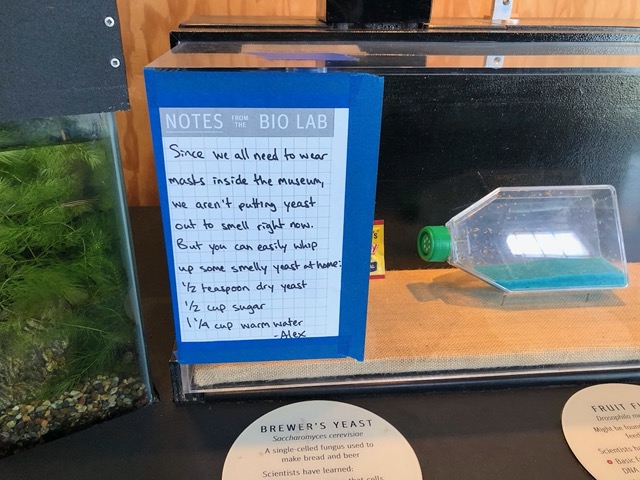 NOTES FROM THE BIO LAB
Since we all need to wear
masks inside the museum,
we aren't putting yeast
out to smell right now.
But you can easily whip
up some smelly yeast at home:
1/2 teaspoon dry yeast
1/2 cup sugar
1 1/4 cup warm water
-Alex
BREWER'S YEAST
Saccharomyces cerevisiae
A single-celled fungus used to
make bread and beer
Scientists have learned:
that cells
FRUIT
Drosophila
Might be
Scientists
Basic
DNA